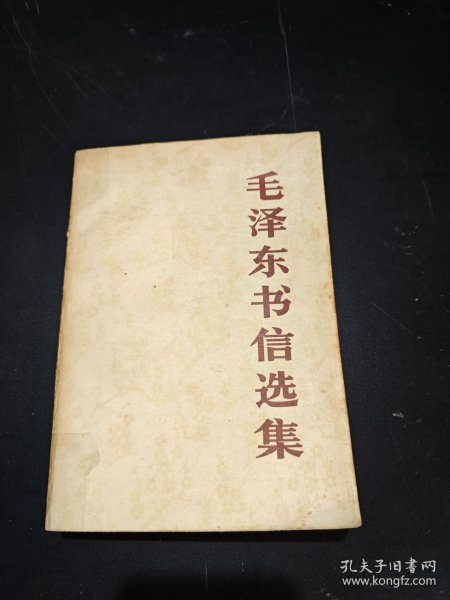 毛泽东书信选集
孔夫子旧书网
www.kongfz.com